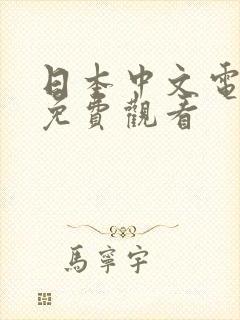 日本中文電
免費觀看
馬寧宇